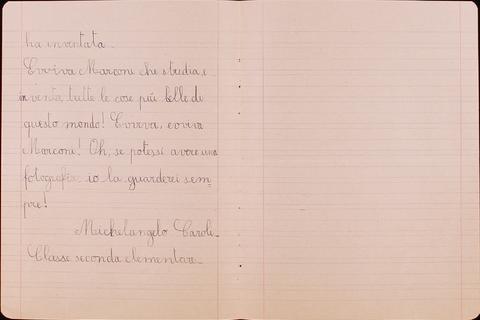 ha inventata.
Evviva Marconi che studia, e
inventa tutte le cose più belle di
questo mondo! Evviva, evviva
Marconi! Oh, se potessi avere una
fotografia io la guarderei sem=
pre!
Michelangelo Caroli.
Classe seconda elementare.